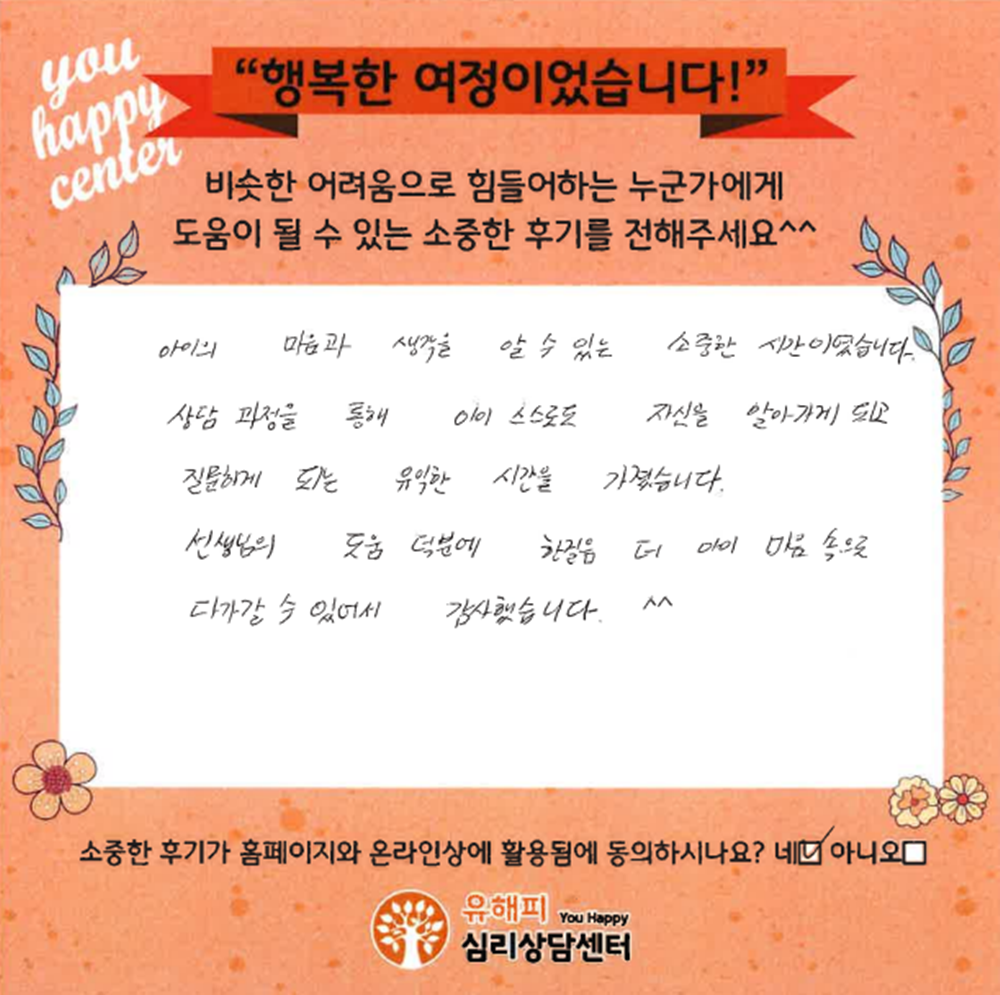 you
happy
center
“행복한 여정이었습니다!”
비슷한 어려움으로 힘들어하는 누군가에게
도움이 될 수 있는 소중한 후기를 전해주세요^^
아이의 마음과 생각을 알 수 있는 소중한 시간이였습니다.
상담 과정을 통해 아이 스스로도 자신을 알아가게 되고
질문하게 되는 유익한 시간을 가졌습니다.
선생님의 도움 덕분에 한걸음 더 아이 마음 속으로
다가갈 수 있어서 감사했습니다. ^^
소중한 후기가 홈페이지와 온라인상에 활용됨에 동의하시나요? 네☑ 아니오☐
유해피 You Happy
심리상담센터